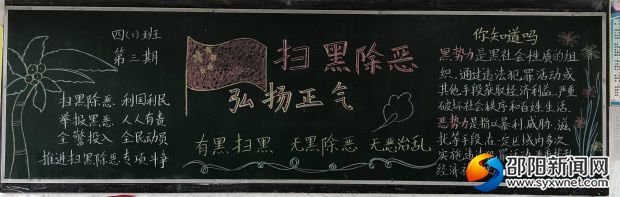 四(1)班
第三期
扫黑除恶 利国利民
举报黑恶 人人有责
全警投入 全民动员
推进扫黑除恶专项斗争
扫黑除恶
弘扬正气
有黑扫黑 无黑除恶 无恶治乱
你知道吗
黑势力是黑社会性质的组
织、通过违法犯罪活动或
其他手段获取经济利益,严重
破坏社会秩序和百姓生活.
恶势力是指以暴利,威胁、滋
扰等手段,在一定区域内多次
实施违
经济
邵阳新闻网
www.syxwnet.com